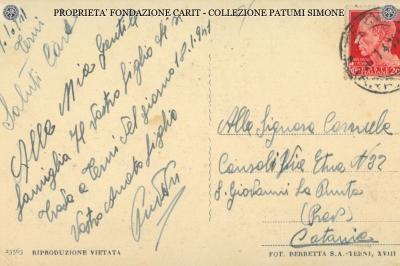 PROPRIETA' FONDAZIONE CARIT - COLLEZIONE PATUMI SIMONE
Terni
Saluti Cari
Alla Mia Gentile
famiglia Il Vostro figlio
Trova a Terni del giorno 18.1.941
Vostro Amato figlio
Alla Signora Carmela
Consoli Via Etna N 32
S. Giovanni La Punta
(Prov)
Catania
25565 RIPRODUZIONE VIETATA
FOT. BERRETTA S.A.-TERNI, XVIII